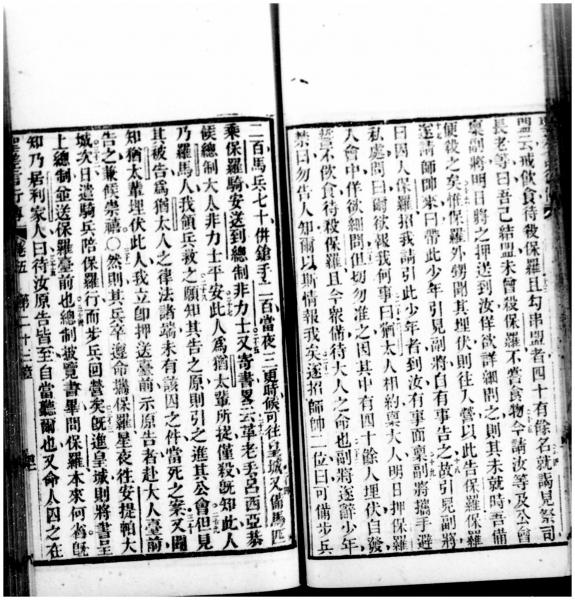 盟云戒飲食待殺保羅且勾串盟者四十有餘名就謁見祭司
長老等曰吾己結盟未曾殺保羅不嘗食物今請汝等及公會
稟副將明日將之押送到汝佯欲詳細問之則其未就時吾備
便殺之矣惟保羅外甥聞其埋伏則往入營以此告保羅保羅
遂請師帥來曰帶此少年引見副將自有事告之故引見副將
曰囚人保羅招我請引此少年者到汝有事面稟副將攜手避
私處問曰爾欲報我何事曰猶太人相約稟大人明日押保羅
入會中佯欲細問但切勿准之因其中有四十餘人埋伏自發
誓不飲食待殺保羅且今衆備待大人之命也副將遂辭少年
禁曰勿告人知爾以斯情報我矣遂招師帥二位曰可備步兵
二百馬兵七十併鎗手二百當夜三更時候可往皇城又備馬匹
乘保羅騎安送到總制非力士又寄書畧云革老丢呂西亞恭
候總制大人非力士平安此人爲猶太輩所捉僅殺旣知此人
乃羅馬人我領兵救之願知其告之原則引之進其公會但見
其被告爲猶太人之律法諸端未有該囚之件當死之案又聞
知猶太輩埋伏此人我立卽押送臺前示原告者赴大人臺前
告之兼候崇禧○然則其兵卒遵命攜保羅星夜往安提帕大
城次日遣騎兵陪保羅行而步兵回營矣旣進皇城則將書呈
上總制並送保羅臺前也總制披覽書畢問保羅本來何省旣
知乃居利家人曰待汝原告皆至自當聽爾也又命人囚之在
卷五 第二十三章